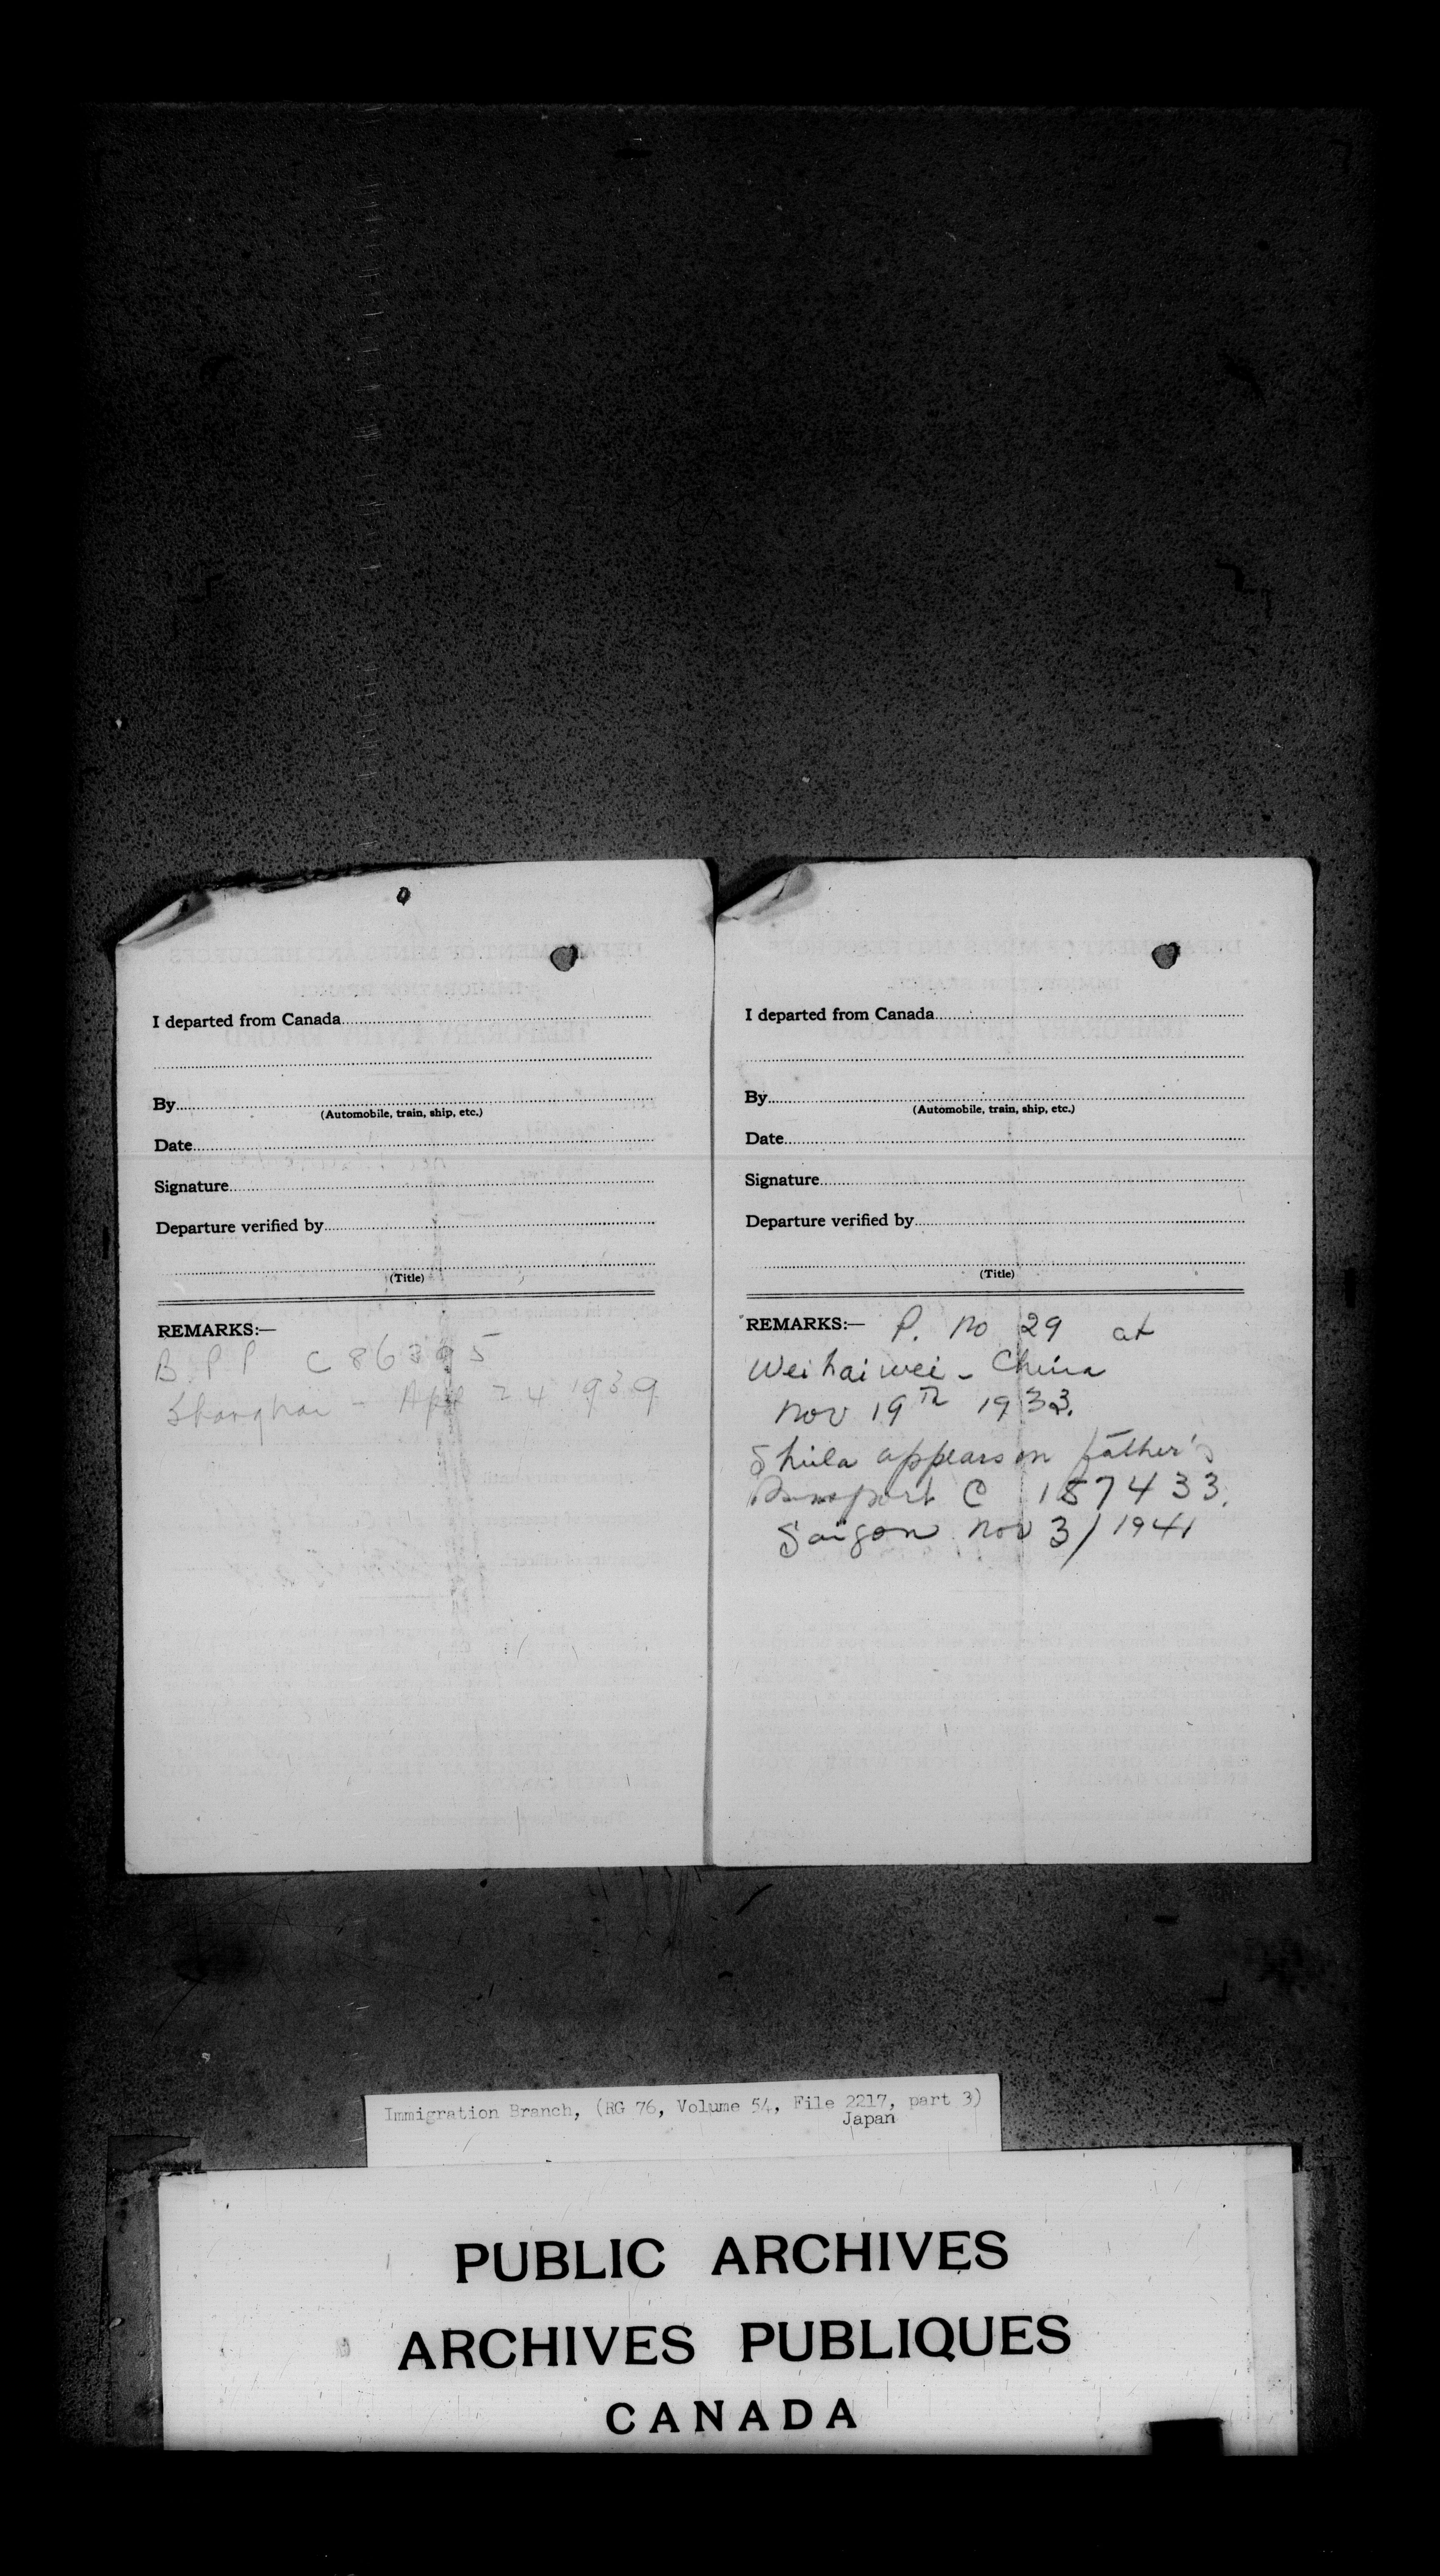 I departed from Canada
By
(Automobile, train, ship, etc.)
Date
Signature
Departure verified by
(Title)
REMARKS:—
B.P.P C 86395
Shanghai - Apl 24 1939
I departed from Canada
By
(Automobile, train, ship, etc.)
Date
Signature
Departure verified by
(Title)
REMARKS:— P. No 29 at
Weihaiwei - China
Nov 19th 1933.
appears on father's
Passport C 187433.
Saigon Nov 3/1941
Immigration Branch, (RG 76, Volume 54, File 2217, part 3)
Japan
PUBLIC ARCHIVES
ARCHIVES PUBLIQUES
CANADA